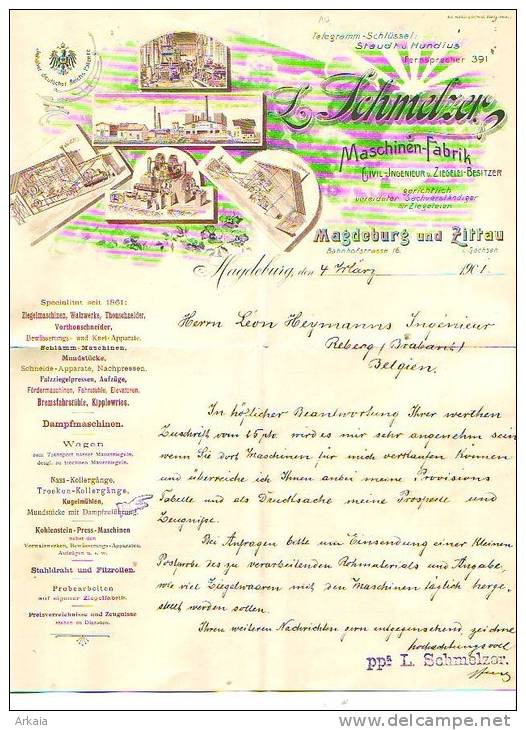 Telegramm-Schlüssel:
Staudt u. Hundius
Fernsprecher 391
L. Schmelzer,
Maschinen-Fabrik
Civil-Ingenieur u. Ziegelei-Besitzer
gerichtlich
vereideter Sachverständiger
für Ziegeleien
Magdeburg und Zittau
Bahnhofstrasse 16. i. Sachsen
Magdeburg, den 4 März 1901.
Specialität seit 1861:
Ziegelmaschinen, Walzwerke, Thonschneider,
Vorthonschneider,
Bewässerungs- und Knet-Apparate.
Schlämm-Maschinen,
Mundstücke,
Schneide-Apparate, Nachpressen.
Falzziegelpressen, Aufzüge,
Fördermaschinen, Fahrstühle, Elevatoren.
Bremsfahrstühle, Kipplowries.
Dampfmaschinen.
Wagen
zum Transport nasser Mauerziegeln,
desgl. zu trocknen Mauerziegeln.
Nass-Kollergänge.
Trocken-Kollergänge,
Kugelmühlen,
Mundstücke mit Dampfzuführung.
Kohlenstein-Press-Maschinen
nebst den
Vorwalzwerken, Bewässerungs-Apparaten,
Aufzügen u. s. w.
Stahldraht und Filzrollen.
Probearbeiten
auf eigener Ziegelfabrik.
Preisverzeichnisse und Zeugnisse
stehen zu Diensten.
Herrn Léon Heymanns Ingénieur
Reberg (Brabant)
Belgien.
In höflicher Beantwortung Ihrer werthen
Zuschrift vom 25 pto. wird es mir sehr angenehm sein
wenn Sie dort Maschinen für mich verkaufen können
und überreiche ich Ihnen anbei meine Provisions
Tabelle und als Drucksache meine Prospecte und
Zeugnisse.
Bei Anfragen bitte um Einsendung einer kleinen
Postprobe des zu verarbeitenden Rohmaterials und Angabe,
wie viel Ziegelwaaren mit den Maschinen täglich herge-
stellt werden sollen.
Ihren weiteren Nachrichten gern entgegensehend, zeichne
hochachtungsvoll
ppa L. Schmelzer.
Arkaia
delcampe.net